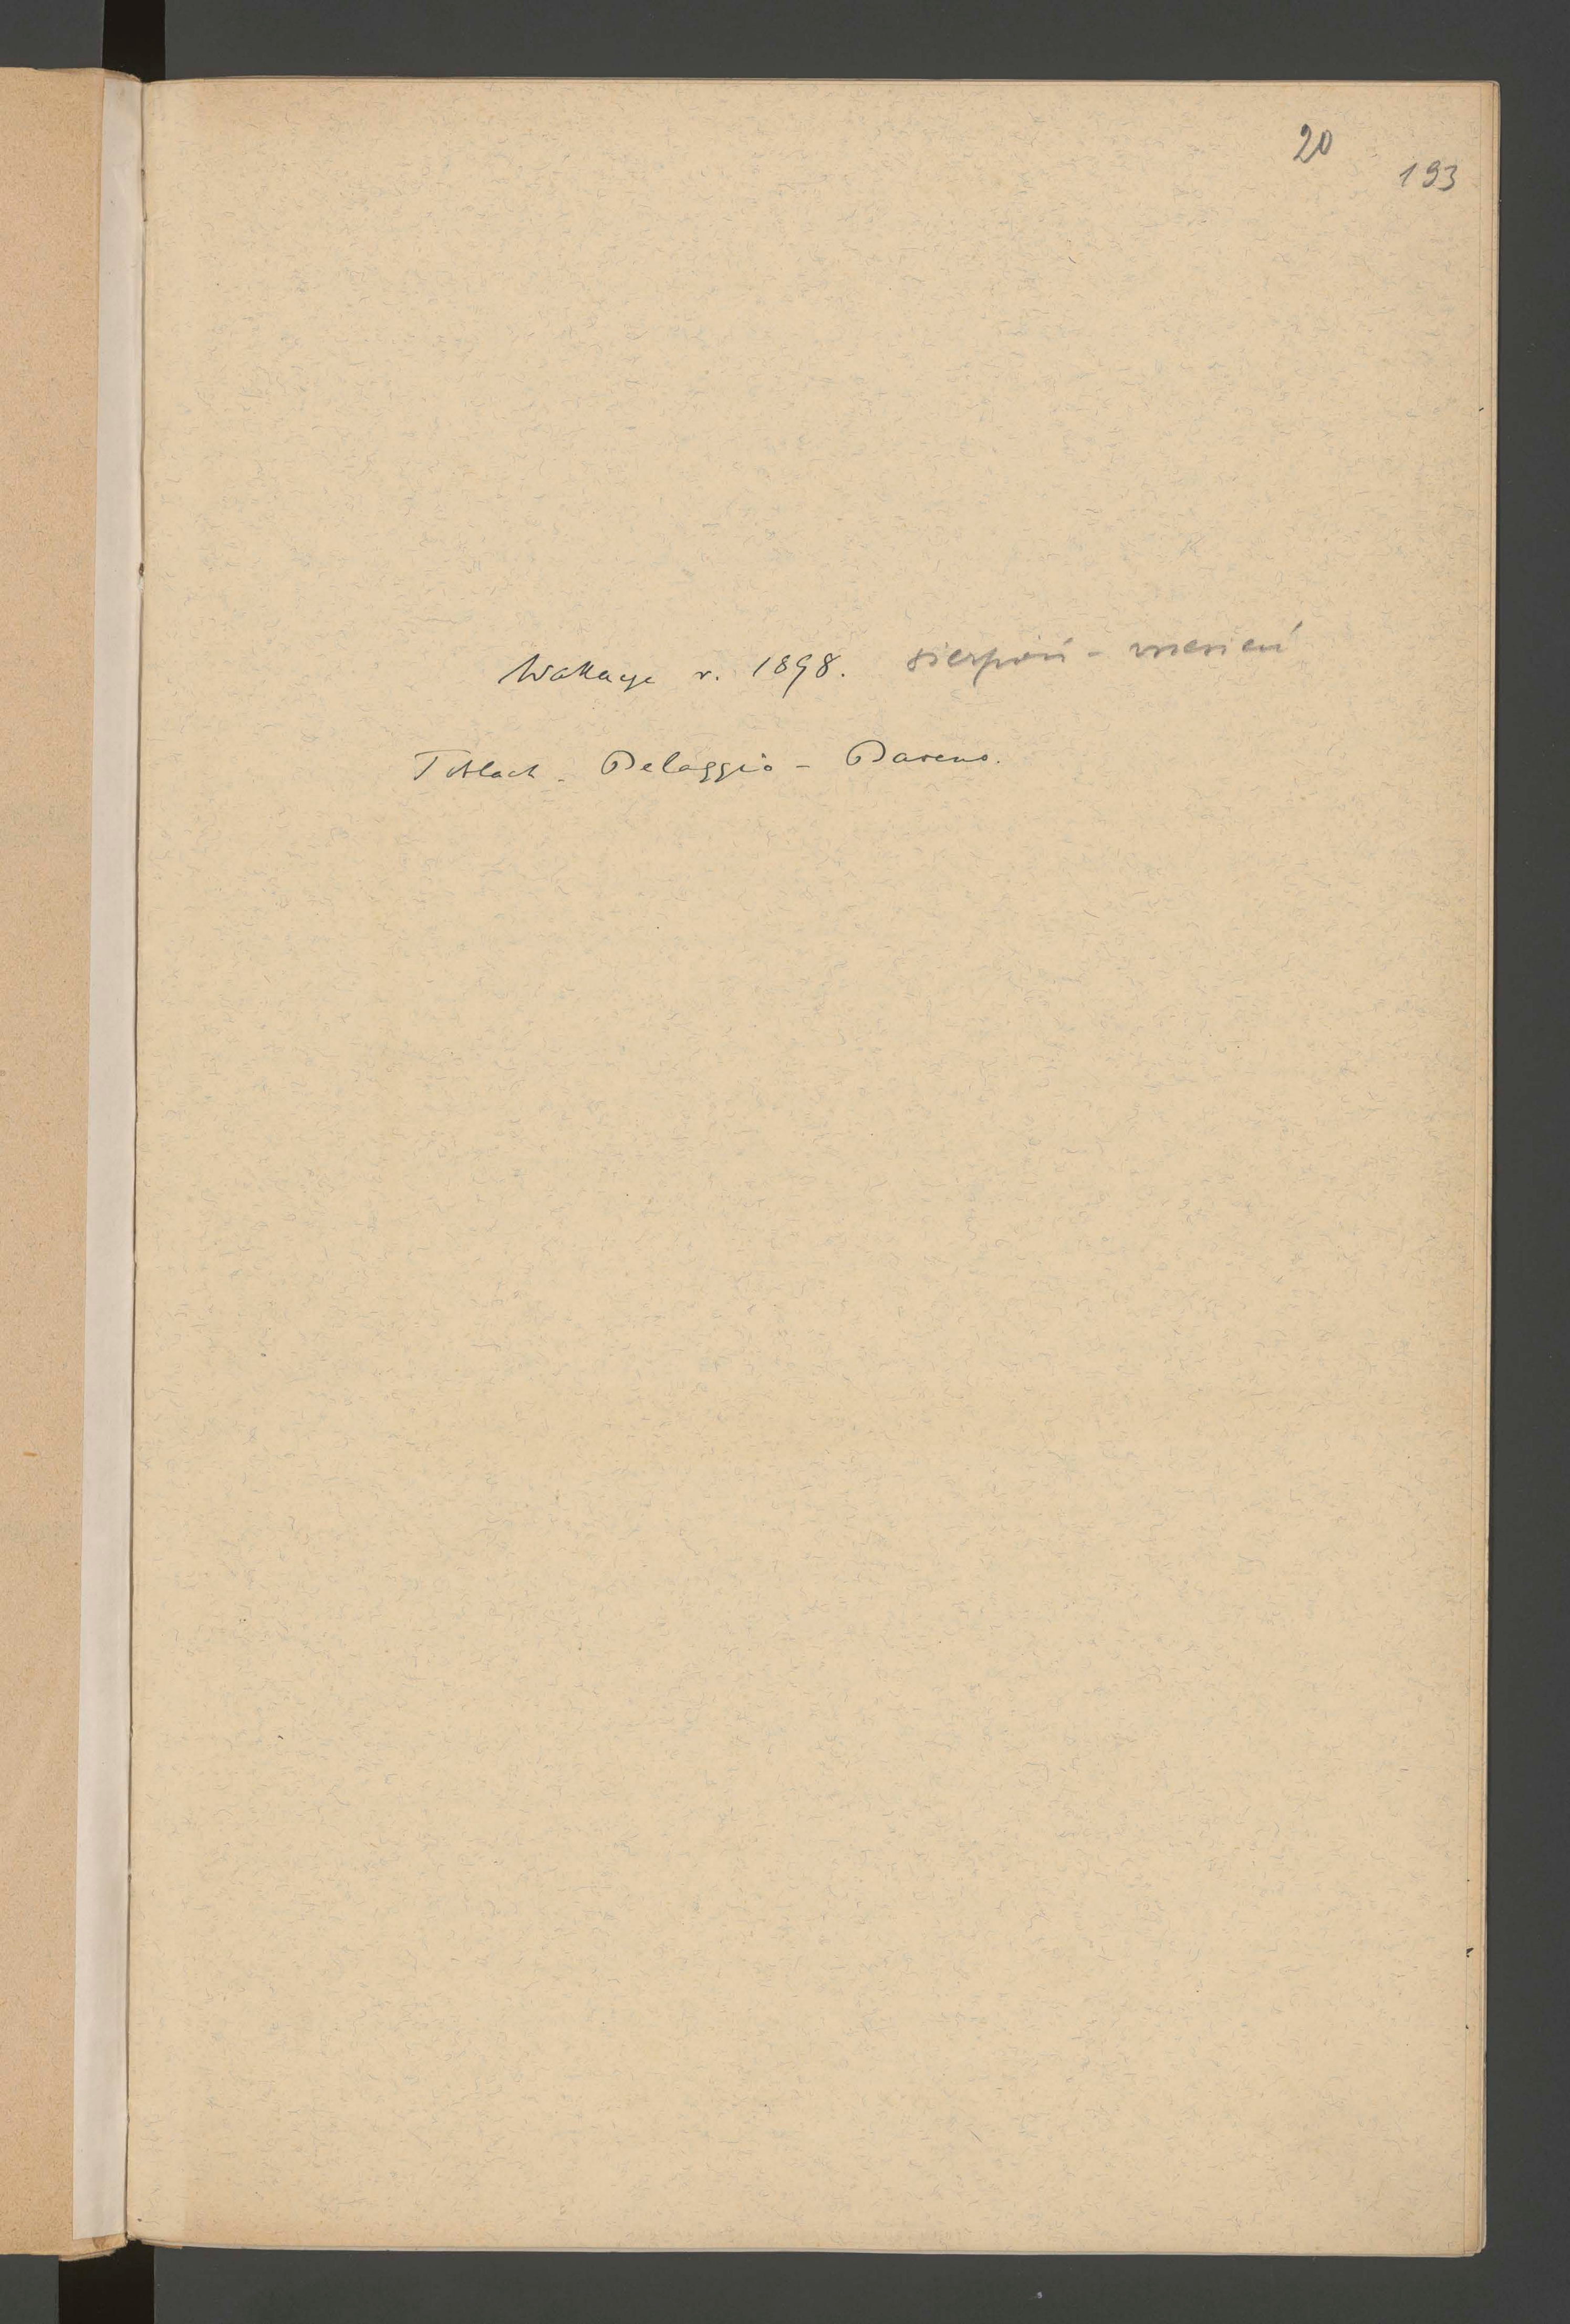 20
193
Wakacye r. 1898. sierpień - wrzesień
Toblach - Belaggio - Baveno.